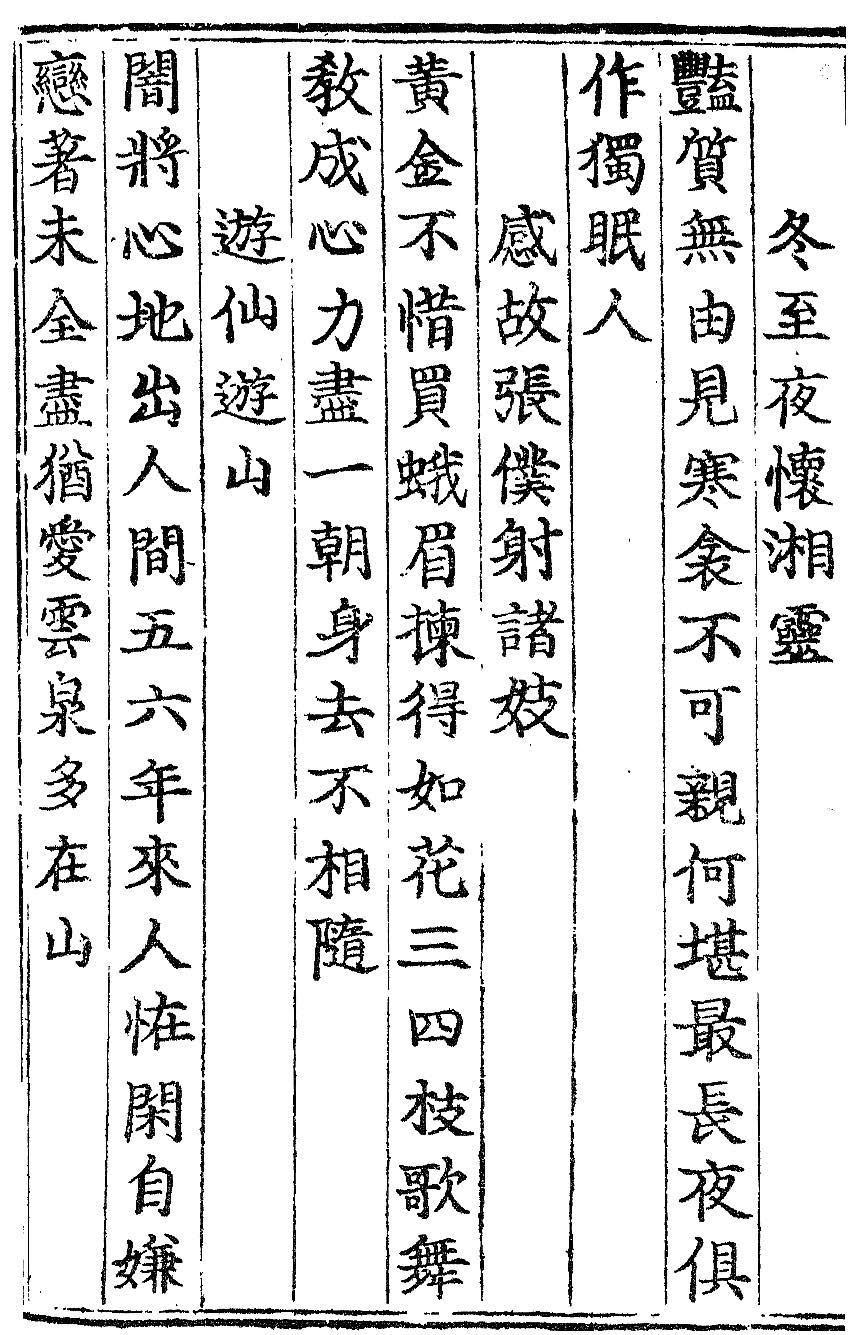 冬至夜懷湘靈
豔質無由見寒衾不可親何堪最長夜俱
作獨眠人
感故張僕射諸妓
黃金不惜買蛾眉揀得如花三四枝歌舞
教成心力盡一朝身去不相隨
遊仙遊山
闇將心地出人間五六年來人恠閑自嫌
戀著未全盡猶愛雲泉多在山